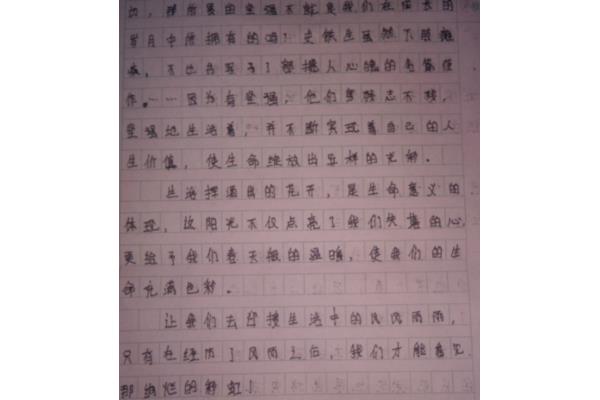 功，那所要的坚强不就是我们在成长的
岁月中所拥有的吗？史铁生虽然下肢瘫
痪，不也写了了撼人心魄的
作。……因为有坚强，他们身残志不残，
坚强地生活着，并不断实现着自己的人
生价值，使生命绽放出异样的光彩。
生活挥洒出的花开，是生命意义的
体现，这阳光不仅点亮了我们失落的心，
更给予我们春天般的温暖，使我们的生
命充满色彩。
让我们去迎接生活中的风风雨雨，
只有在经历了风雨之后，我们才能看见
那绚烂的彩虹！